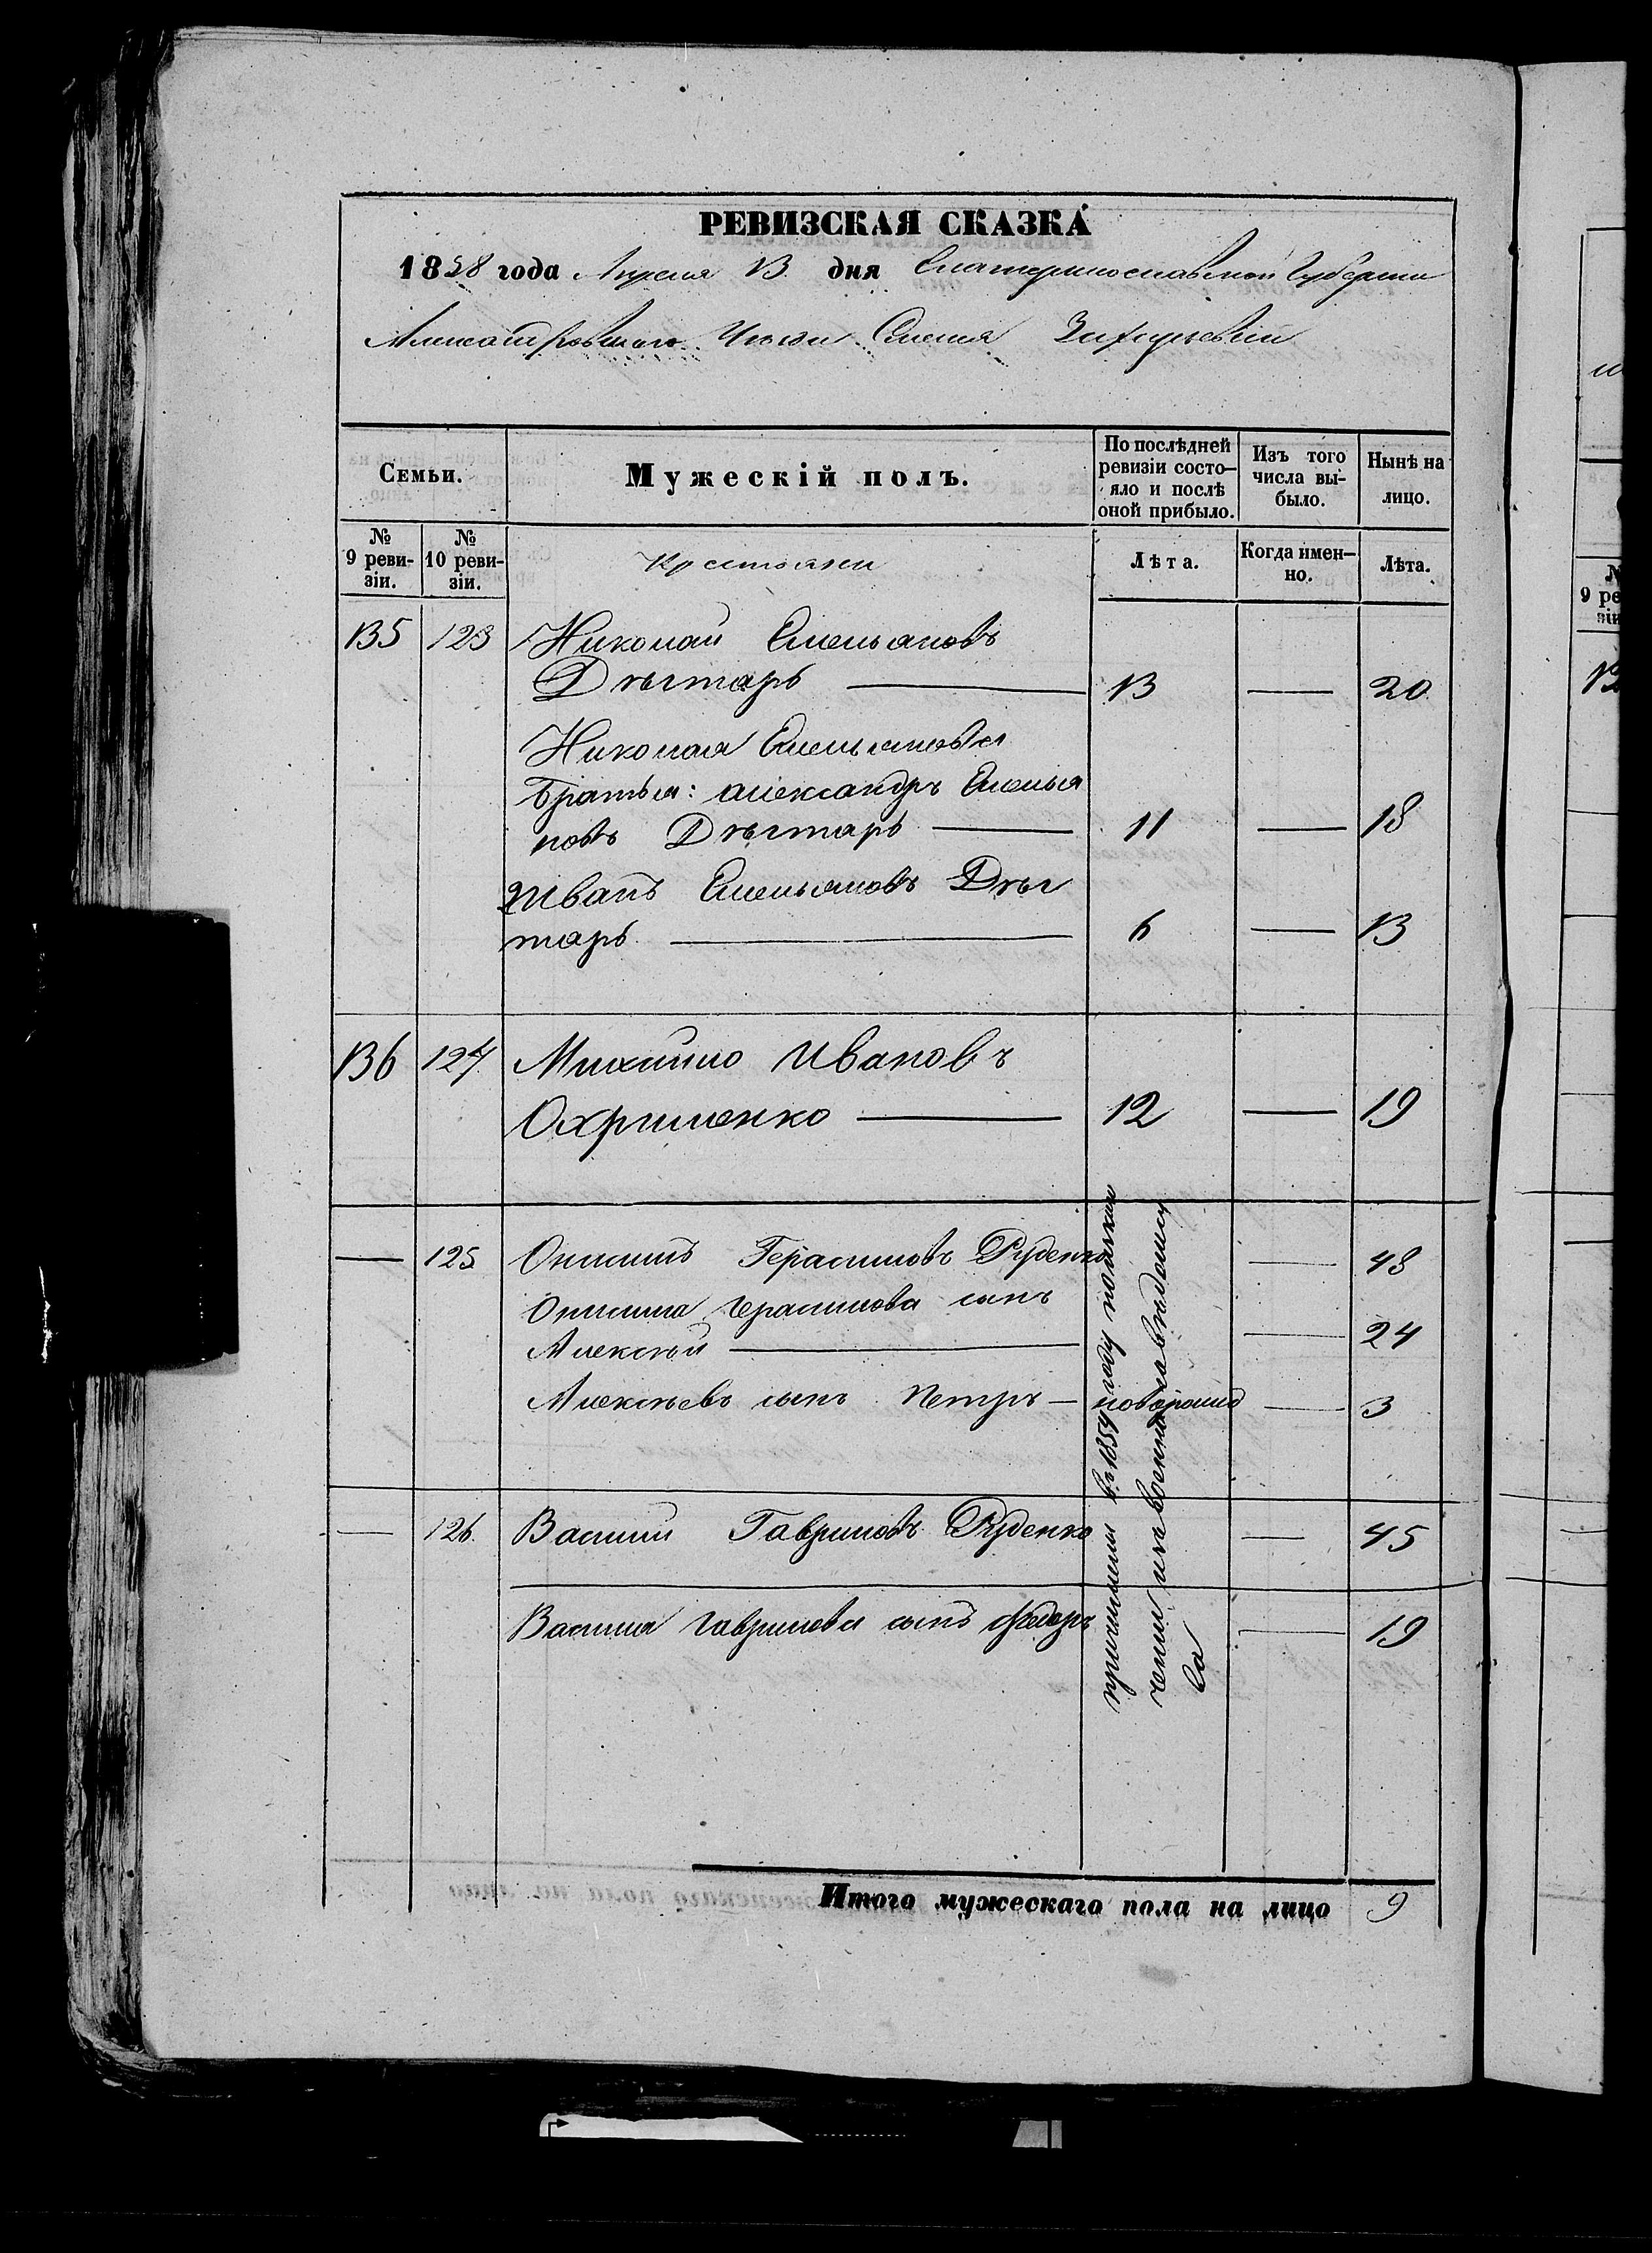 РЕВИЗСКАЯ СКАЗКА
1858 года Апреля 13 дня Екатеринославской Губернии
Александровского Уезда Селенія
Семьи.
Мужескій полъ.
По послѣдней ревизіи состо-
яло и послѣ
оной прибыло.
Изъ того
числа вы-
было.
Нынѣ на
лицо.
№
9 реви-
зіи.
№
10 реви-
зіи.
Крестьяни
Лѣта.
Когда имен-
но.
Лѣта.
135 123 Николай Емельяновъ
Дѣгтарь — 13 — 20
Николая Емельянова
братья: александръ Емелья
новъ Дѣгтарь — 11 — 18
Иванъ Емельяновъ Дѣг
тарь — 6 — 13
136 124 Михайло Ивановъ
Охрименко — 12 — 19
— 125 Онисимъ Герасимовъ Руденко — 48
Онисима Герасимова сынъ
Алексѣй — — 24
Алексѣевъ сынъ Петръ — новорожд — 3
— 126 Василий Гавриловъ Руденко — 45
Василия Гаврилова сынъ Федоръ — 19
причислени въ 1854 году по
ченіи изъ военнаго вѣдомст
ва
Итого мужескаго пола на лицо 9
9 ре
зіи